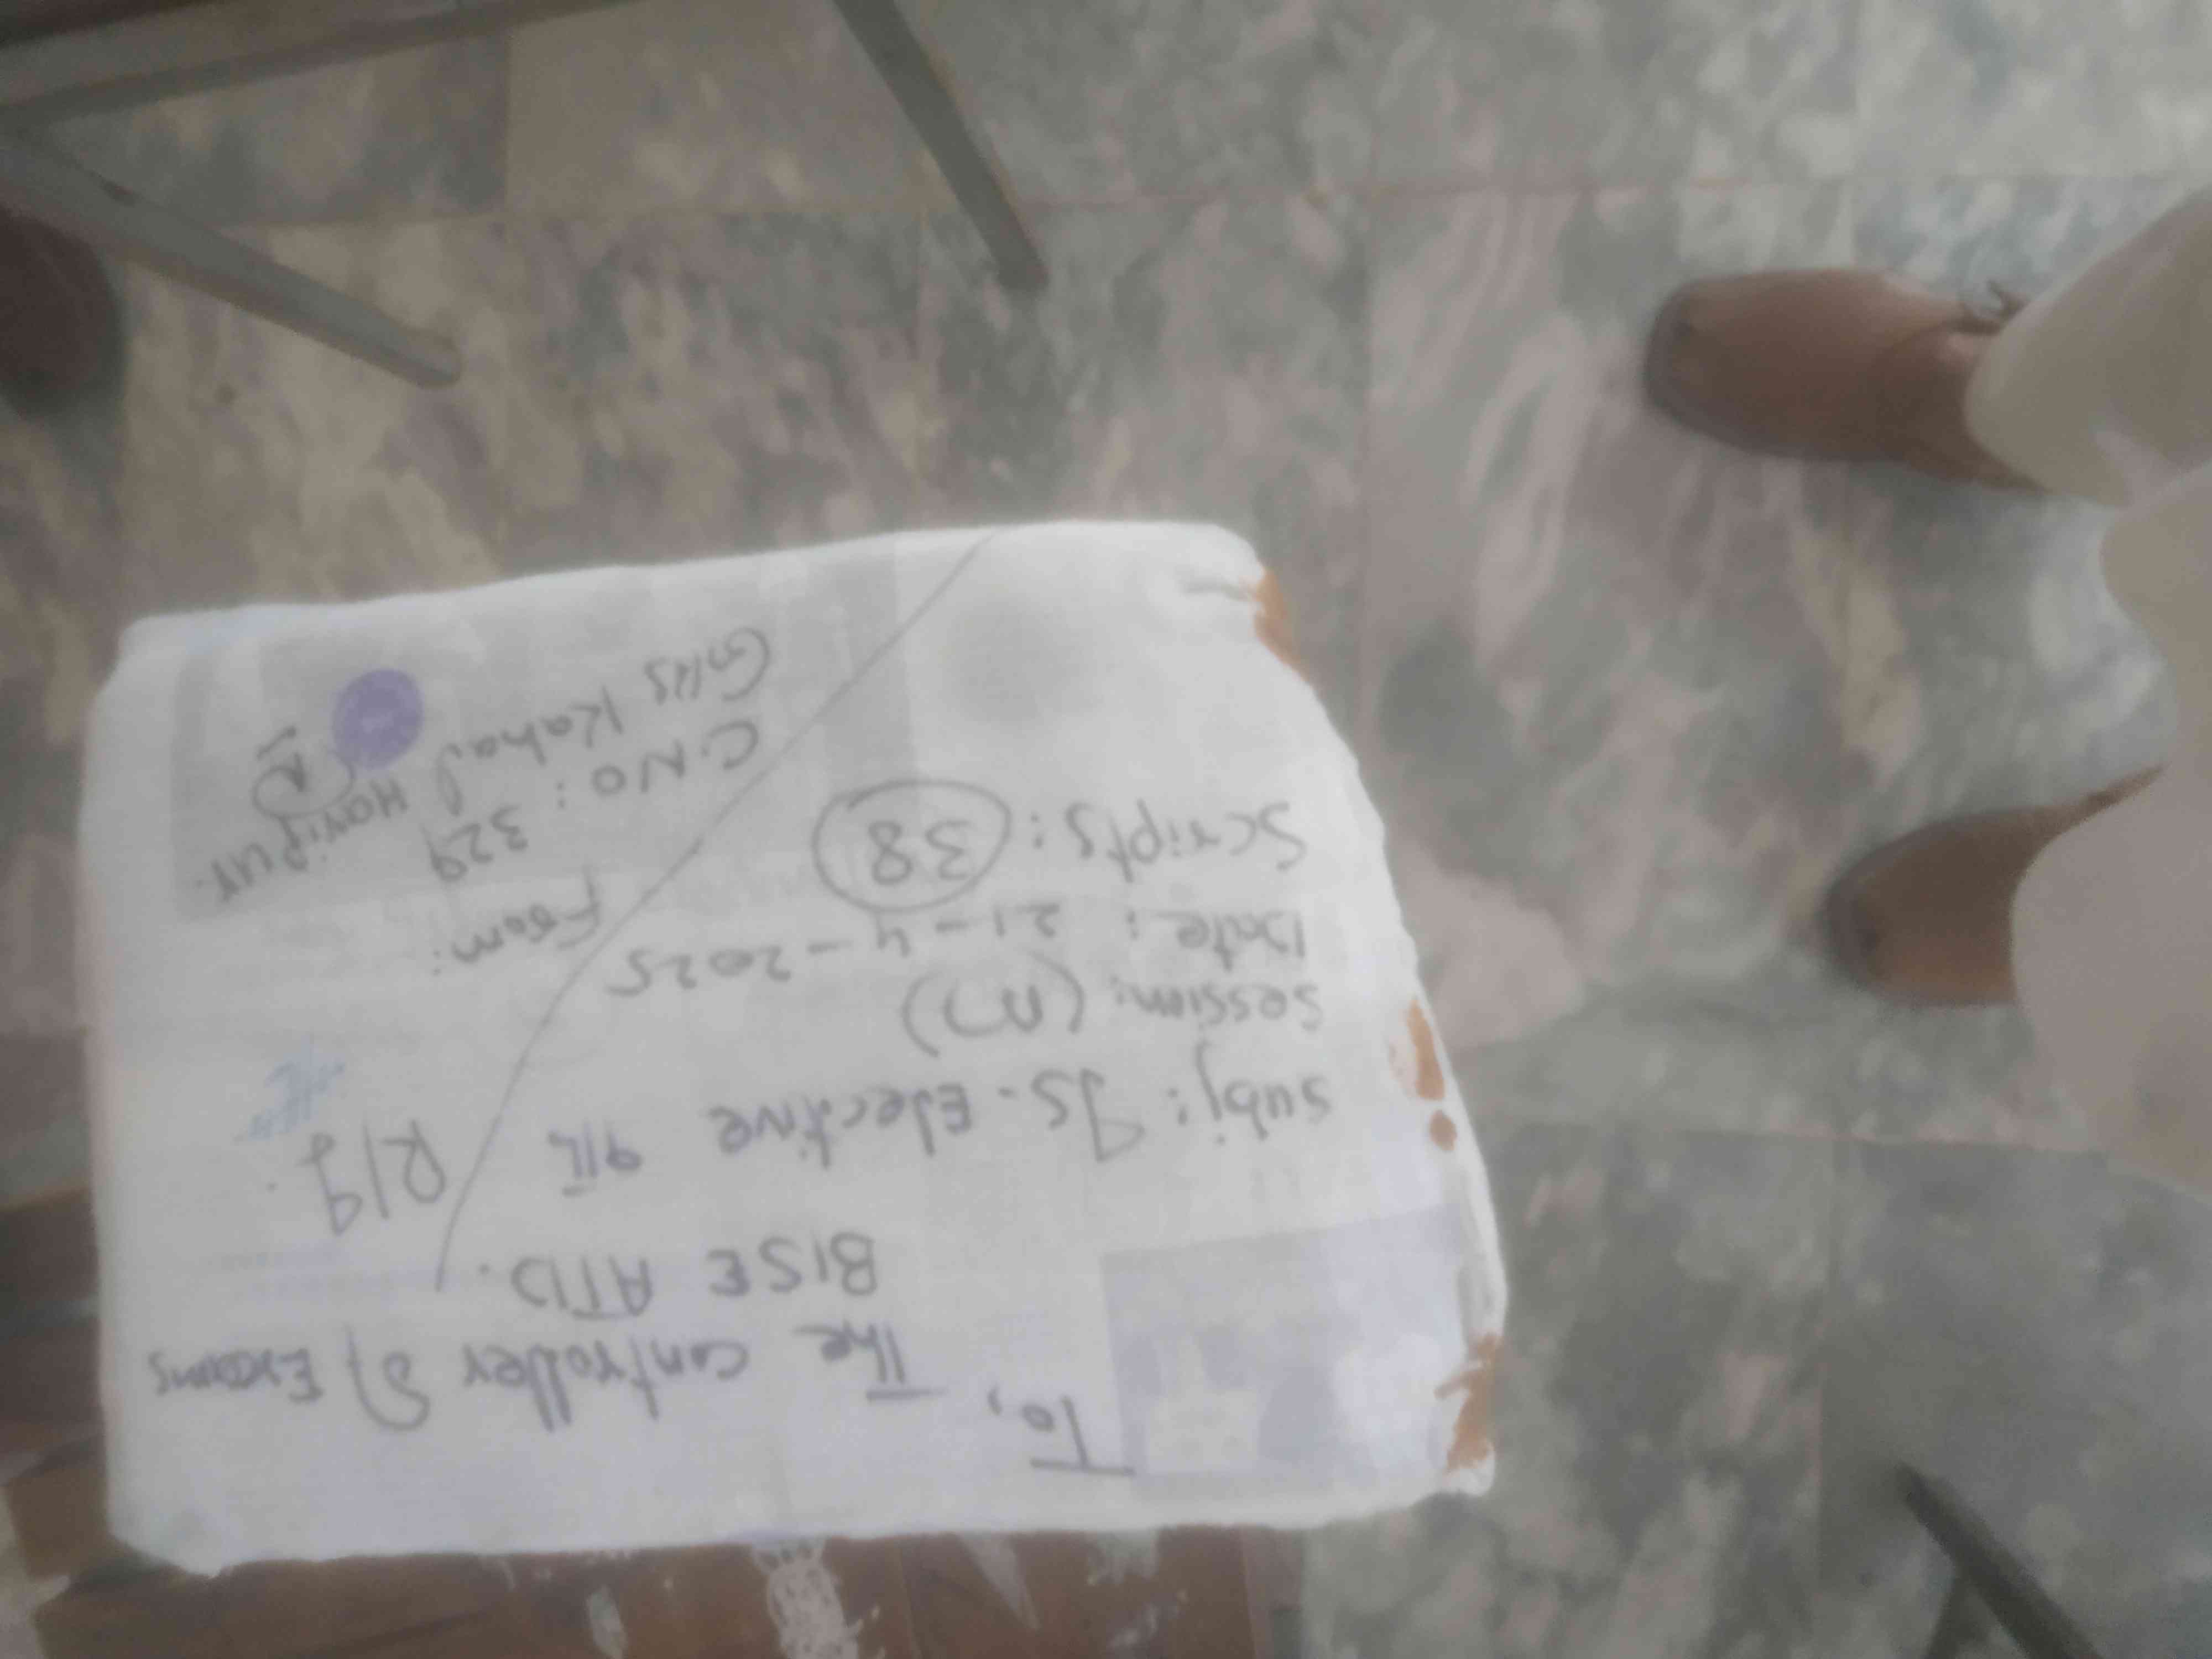 To,
The controller of Exams
BISE ATD.
R/q.
Subj: IS-Elective 9th
Session: (M)
Date: 21-4-2025
Scripts: 38
From:
C.NO: 329
GHS Kahal Haripur.